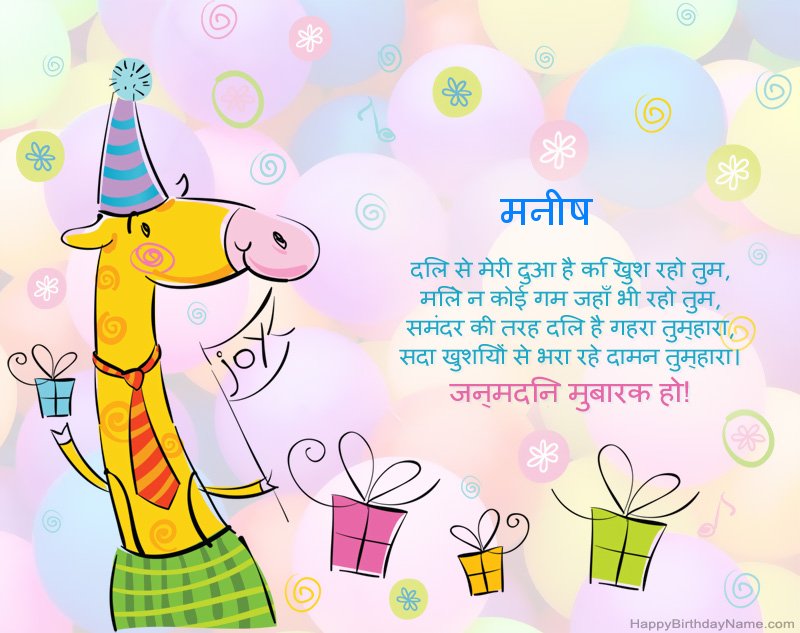 मनीष
दिल से मेरी दुआ है कि खुश रहो तुम,
मिले न कोई गम जहाँ भी रहो तुम,
समंदर की तरह दिल है गहरा तुम्हारा,
सदा खुशियों से भरा रहे दामन तुम्हारा।
जन्मदिन मुबारक हो!
joy
HappyBirthdayName.com